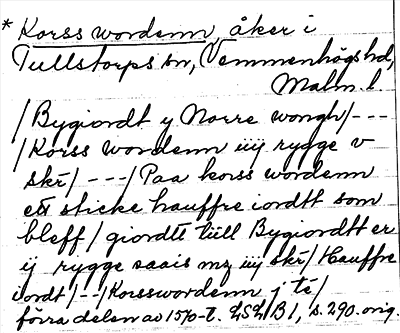 * Korss wordenn, åker i
Tullstorps sn, Vemmenhögs hd,
Malm. l.
/Bygiordt y Norre wongh/---
/Korss wordenn iiij rygge v
skr/ ---/Paa korss wordenn
ett sticke hauffre iordtt som
bleff/giordtt tiill Bygiordtt er
ij rygge saais mz iiij skr/Hauffre
iordt/--/Korsswordenn j té/
förra delen av 1570-t. LSL B1, s. 290. orig.